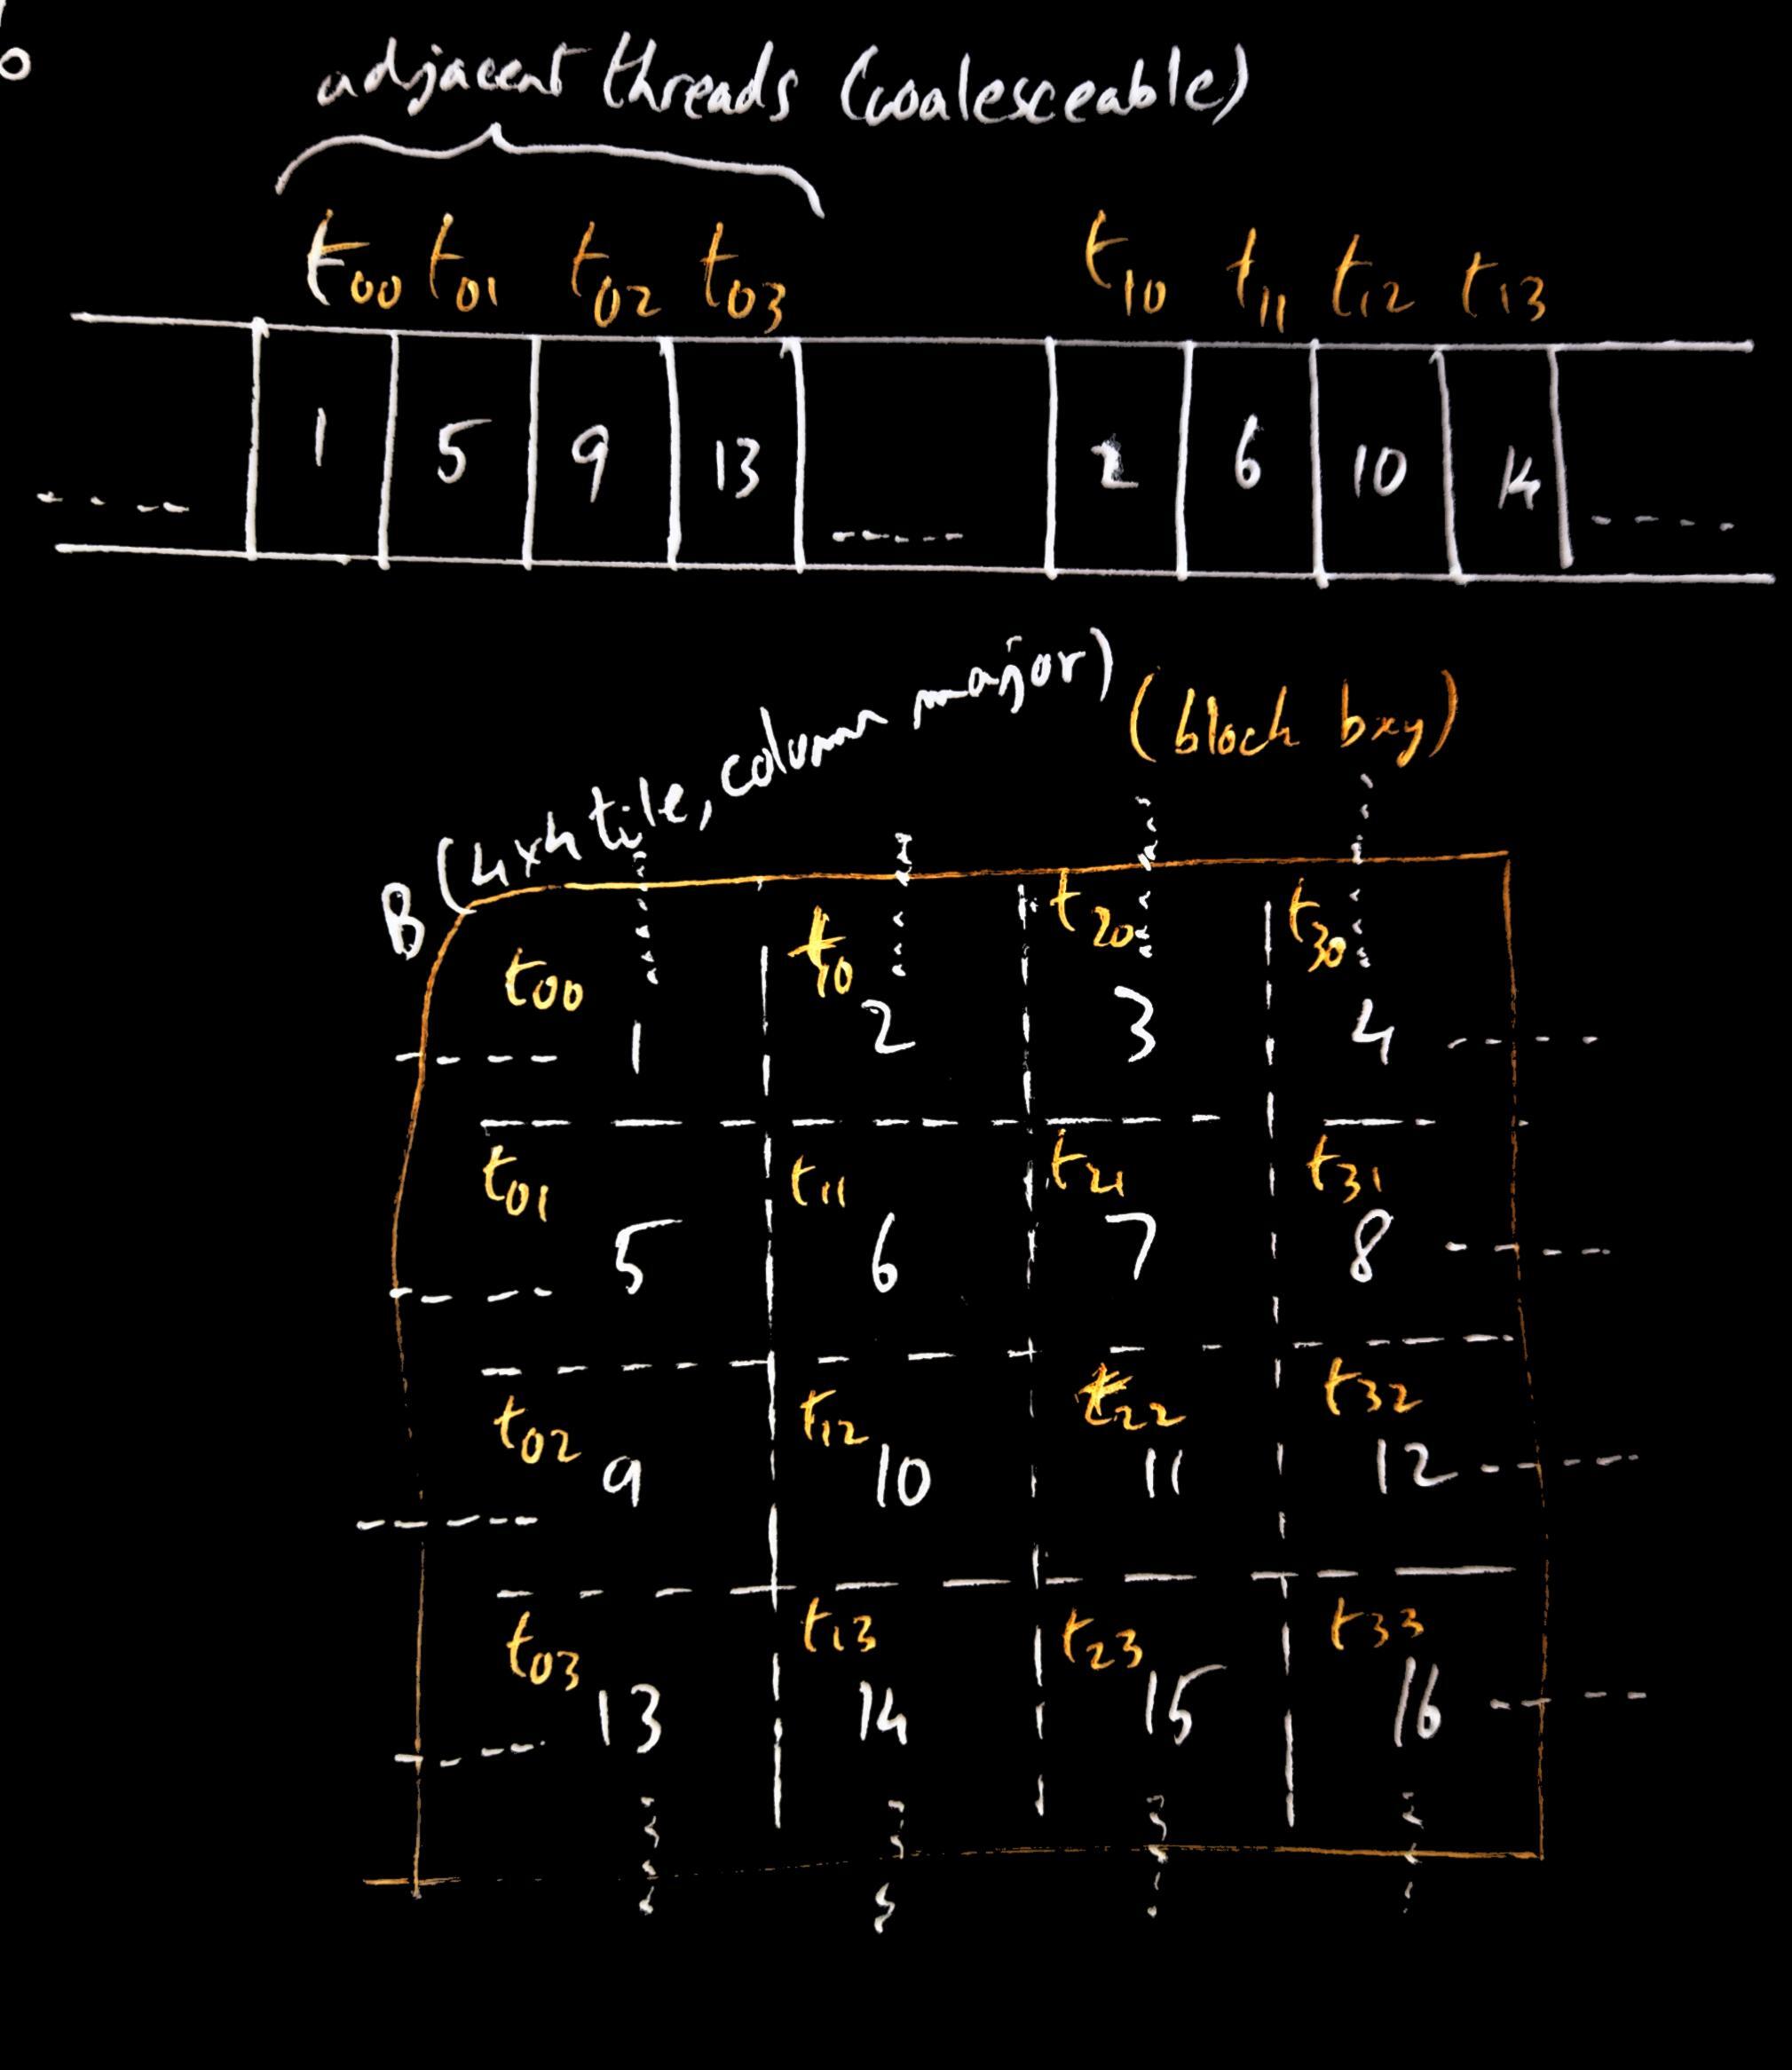 adjacent threads (coalesceable)
t00 t01 t02 t03 t10 t11 t12 t13
1 5 9 13 2 6 10 14
B (4x4 tile, column major) (block bxy)
t00 t10 t20 t30
1 2 3 4
t01 t11 t21 t31
5 6 7 8
t02 t12 t22 t32
9 10 11 12
t03 t13 t23 t33
13 14 15 16